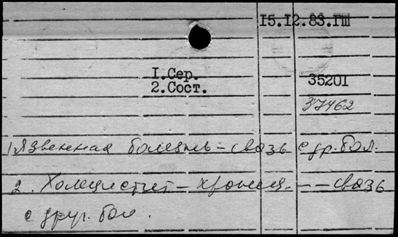 15.12.83.ГШ
1.Сер.
2.Сост.
35201
37462
1) Язвенная болезнь – связь с др. бол.
2. Холецистит – хронич. – – связь
с друг. бол.